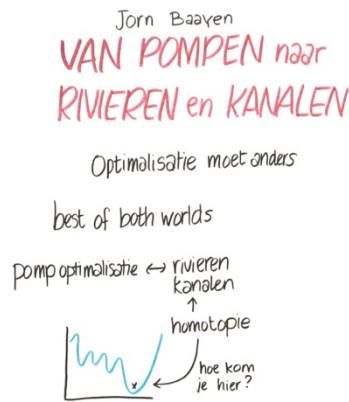 Jorn Baayen
VAN POMPEN naar
RIVIEREN en KANALEN
Optimalisatie moet anders
best of both worlds
pompoptimalisatie ↔ rivieren
kanalen
↑
homotopie
hoe kom
je hier?
x